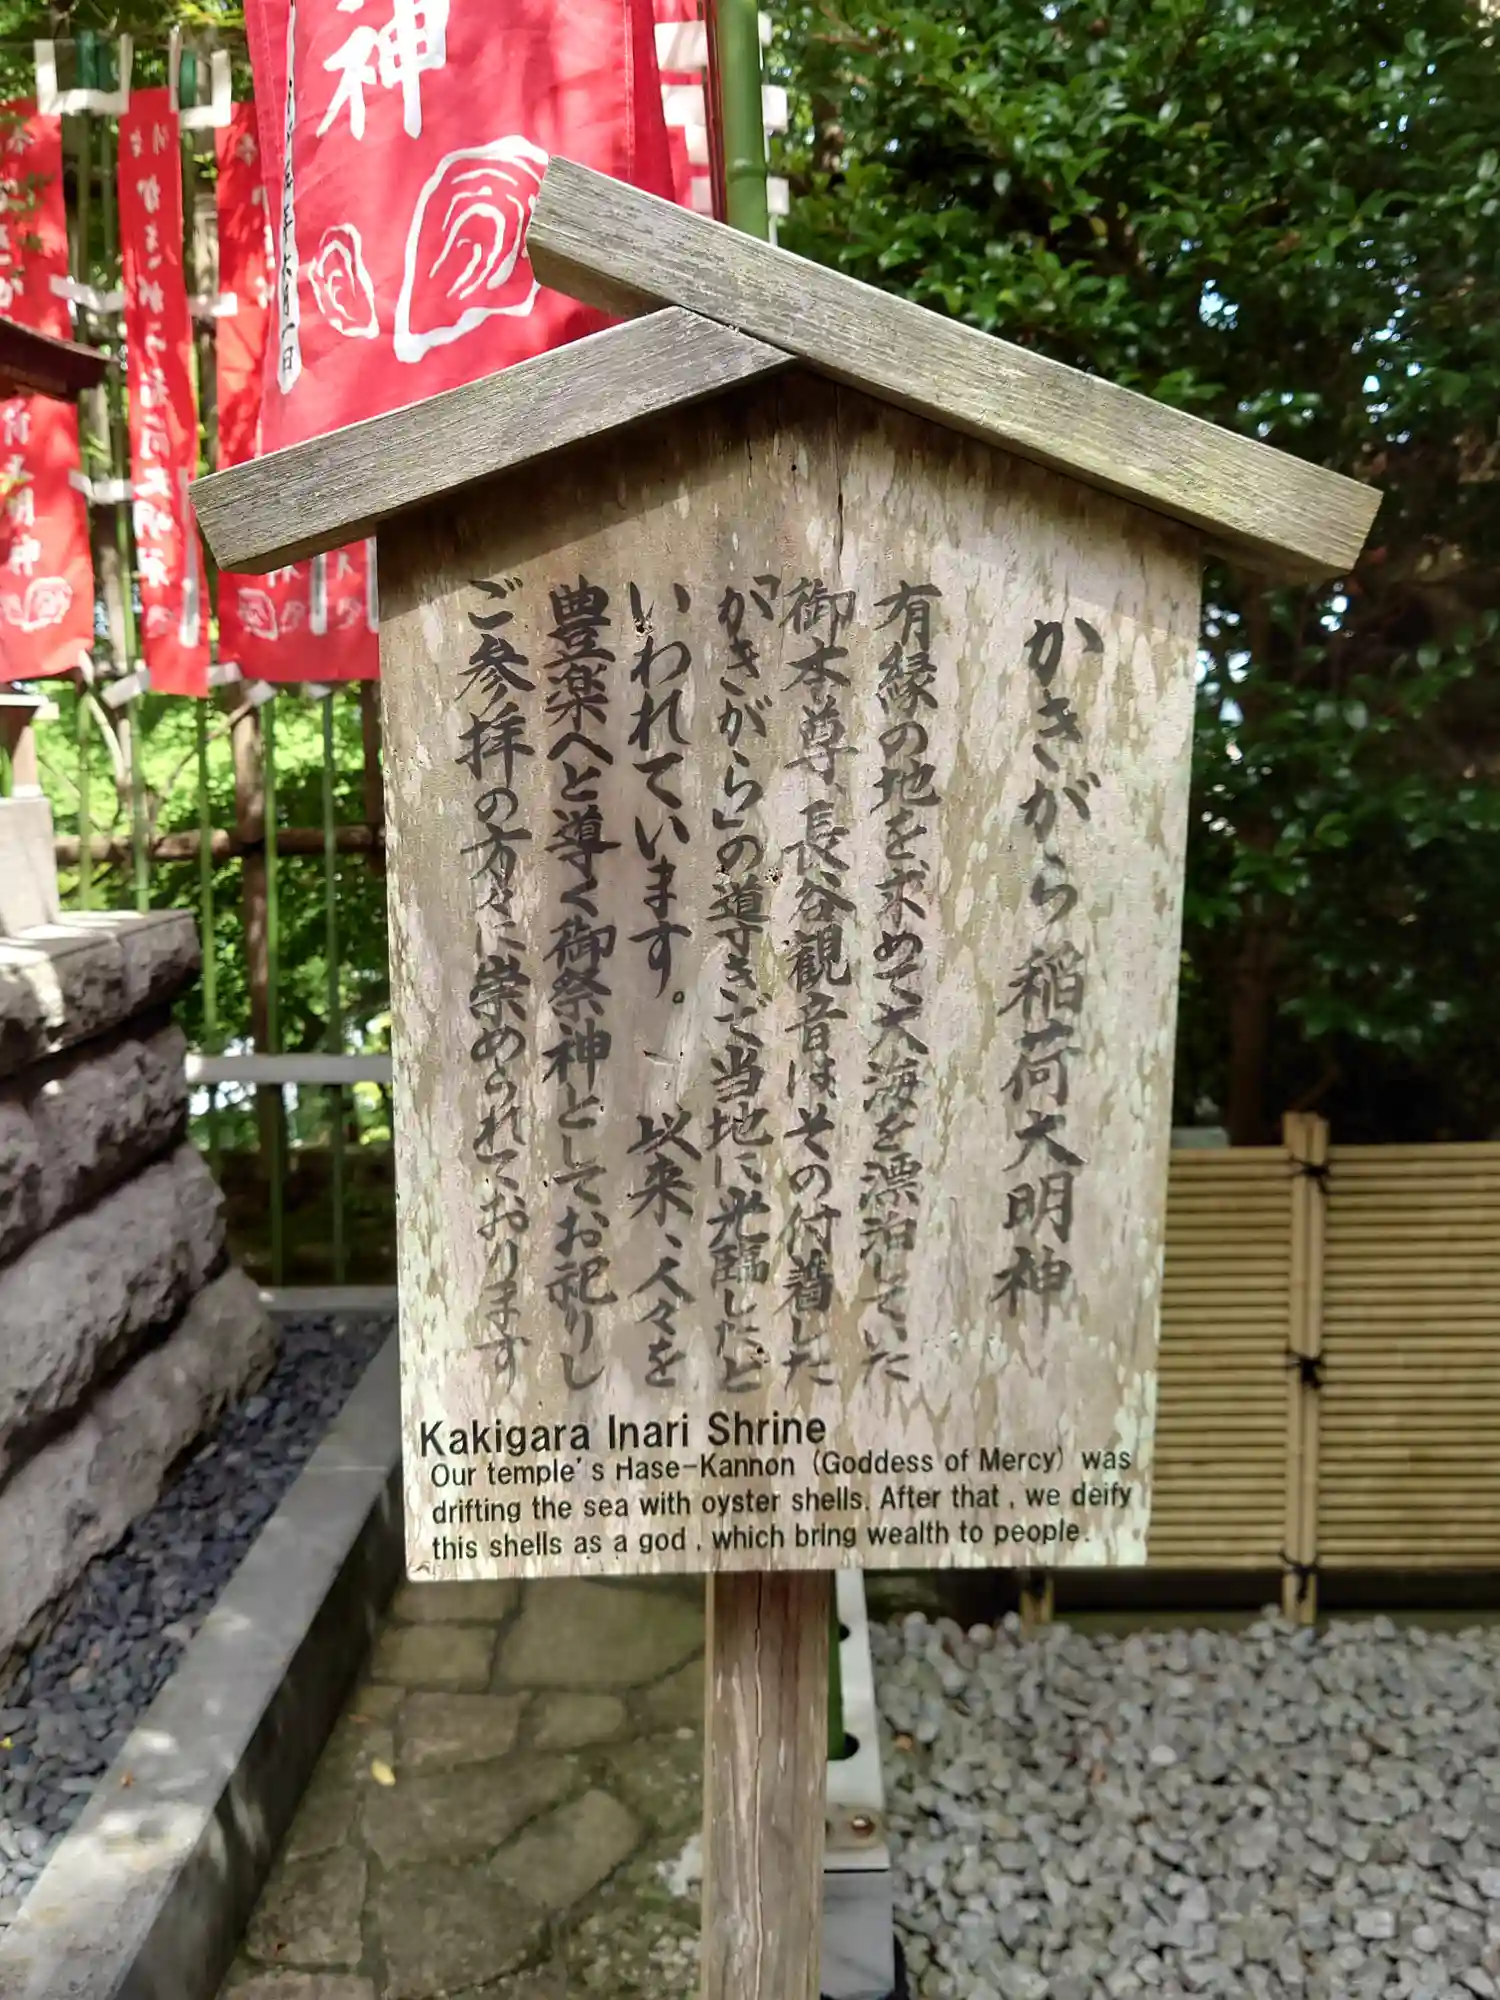 かきがら稲荷大明神
有縁の地を求めて大海を漂泊していた
御本尊、長谷観音は、その付着した
「かきがら」の導きで当地に光臨したと
いわれています。以来、人々を
豊楽へと導く御祭神としてお祀りし
ご参拝の方々に崇められております
Kakigara Inari Shrine
Our temple's Hase-Kannon (Goddess of Mercy) was
drifting the sea with oyster shells. After that, we deify
this shells as a god, which bring wealth to people.
神
年六月一日